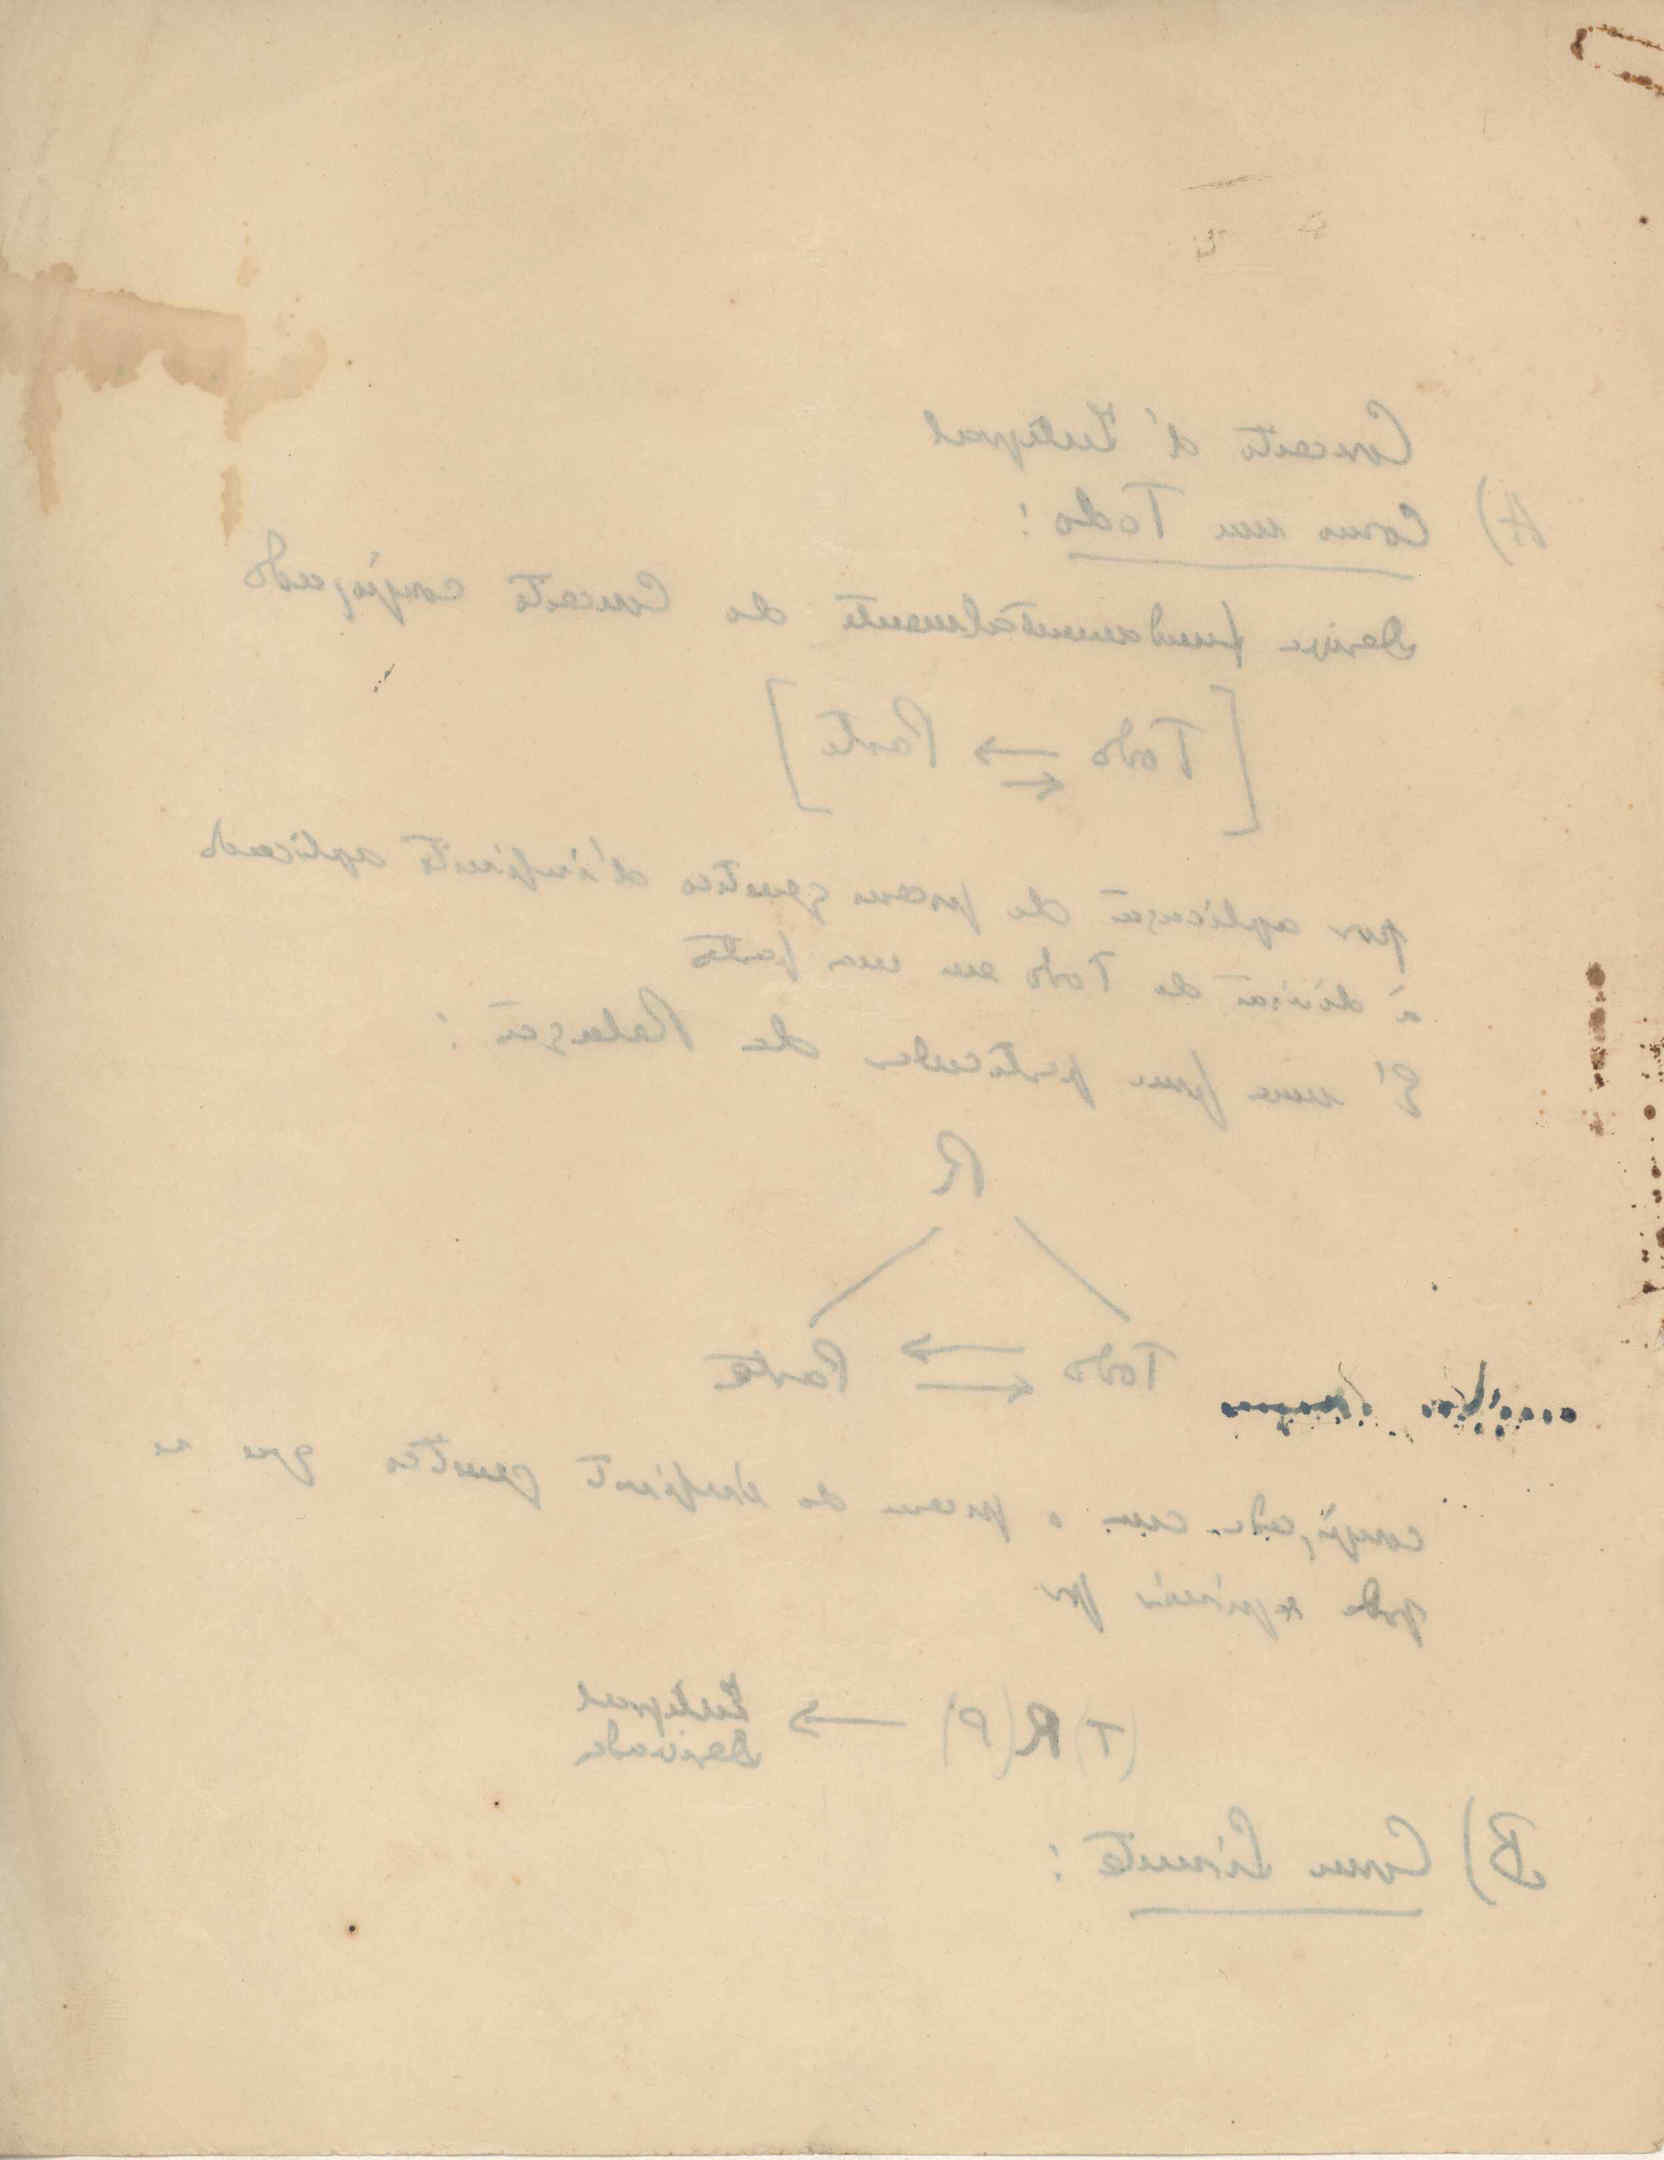 Conceito d'Integral
A) Como um Todo:
Deriva fundamentalmente do Conceito conjugado
[Todo ⇄ Parte]
por aplicação do genetico d'infinito aplicado
à divisão do Todo em parte
É uma particular de Relação:
R
Todo ⇄ Parte
conjugada com o do genetico que se
pode exprimir por
(T)R(P) → Integral
Derivada
B) Como Limite: